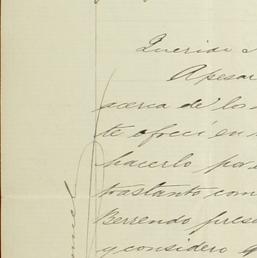 Querido
Apesar
acerca de los
te ofrecí en
hacerlo por
bastante com
Berrendo prese
y considero q